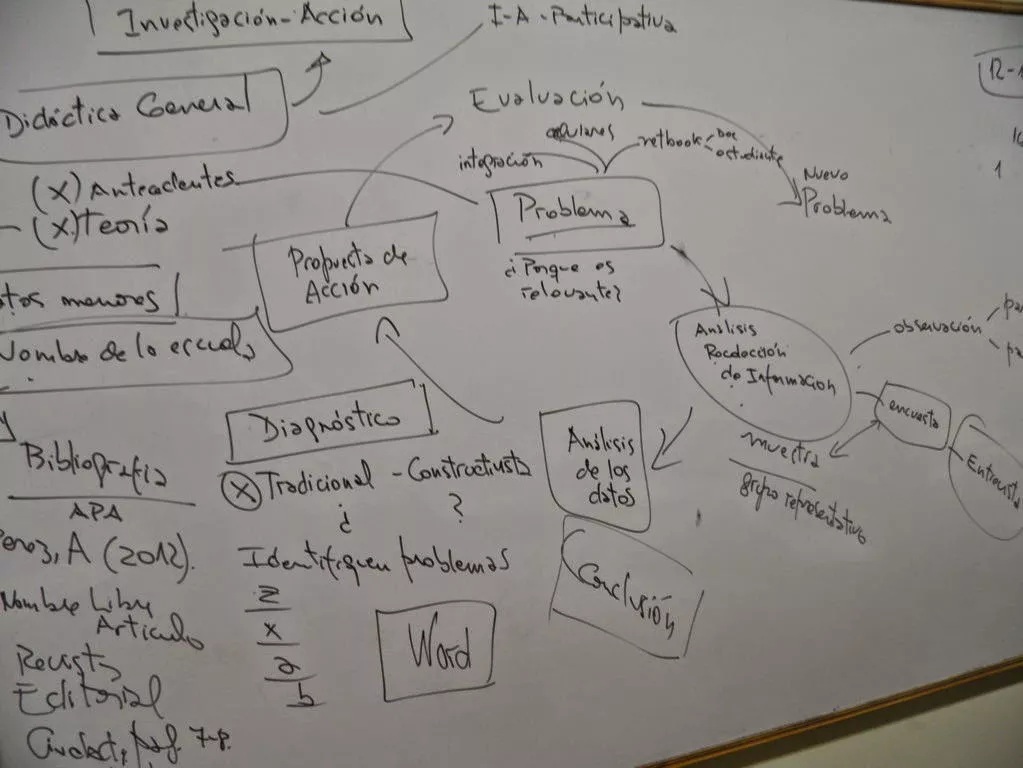 Investigación-Acción
I-A-Participativa
Didáctica General
Evaluación
celulares
integración
netbook
Doc
estudiante
Nuevo
Problema
(x) Antecedentes
- (x) Teoría
Problema
¿Porque es
relevante?
Propuesta de
Acción
menores
Nombre de la escuela
Análisis
de Información
observación
encuesta
Entrevista
muestra
grupo representativo
Diagnóstico
(X) Tradicional - Constructivista
¿ ?
Identifiquen problemas
z
x
a
b
Análisis
de los
datos
Conclusión
Word
Bibliografía
APA
Perez, A (2012).
Nombre Libro
Artículo
Revista
Editorial
Ciudad, pág. 7-8.
R-1
1